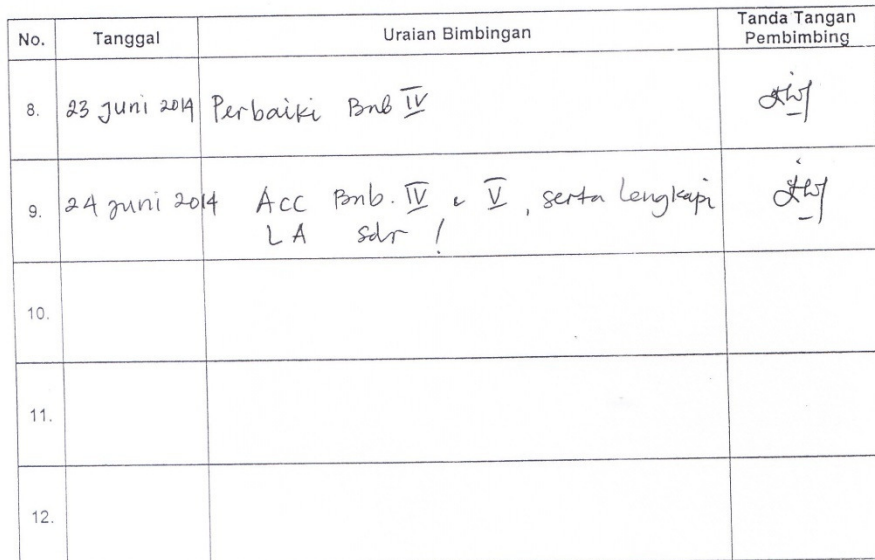 No. Tanggal Uraian Bimbingan Tanda Tangan
Pembimbing
8. 23 Juni 2014 Perbaiki Bab IV
9. 24 Juni 2014 Acc Bab. IV & V, serta lengkapi
LA sdr !
10.
11.
12.